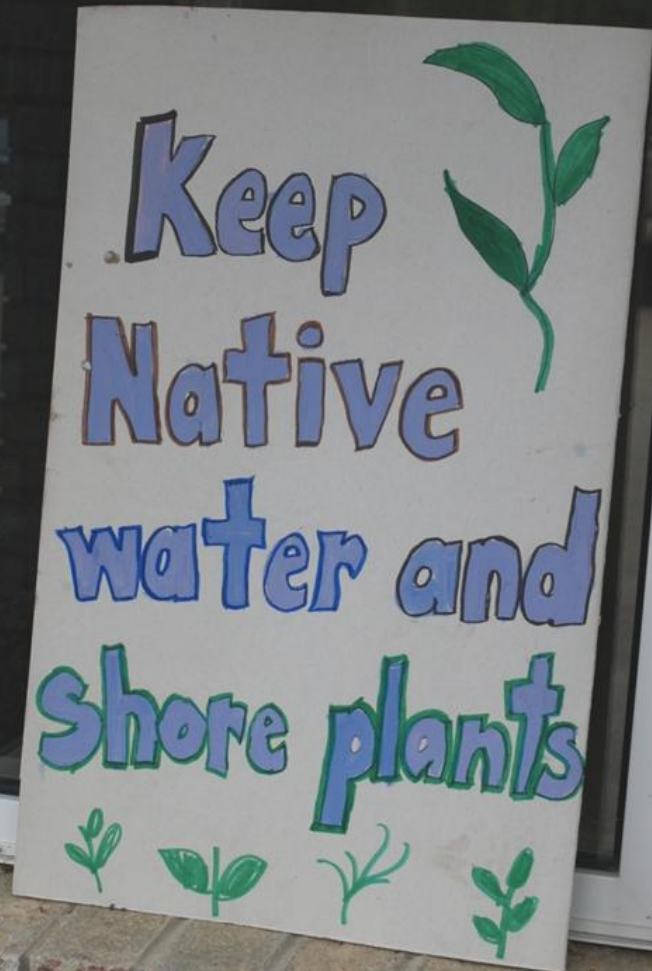 Keep
Native
water and
shore plants